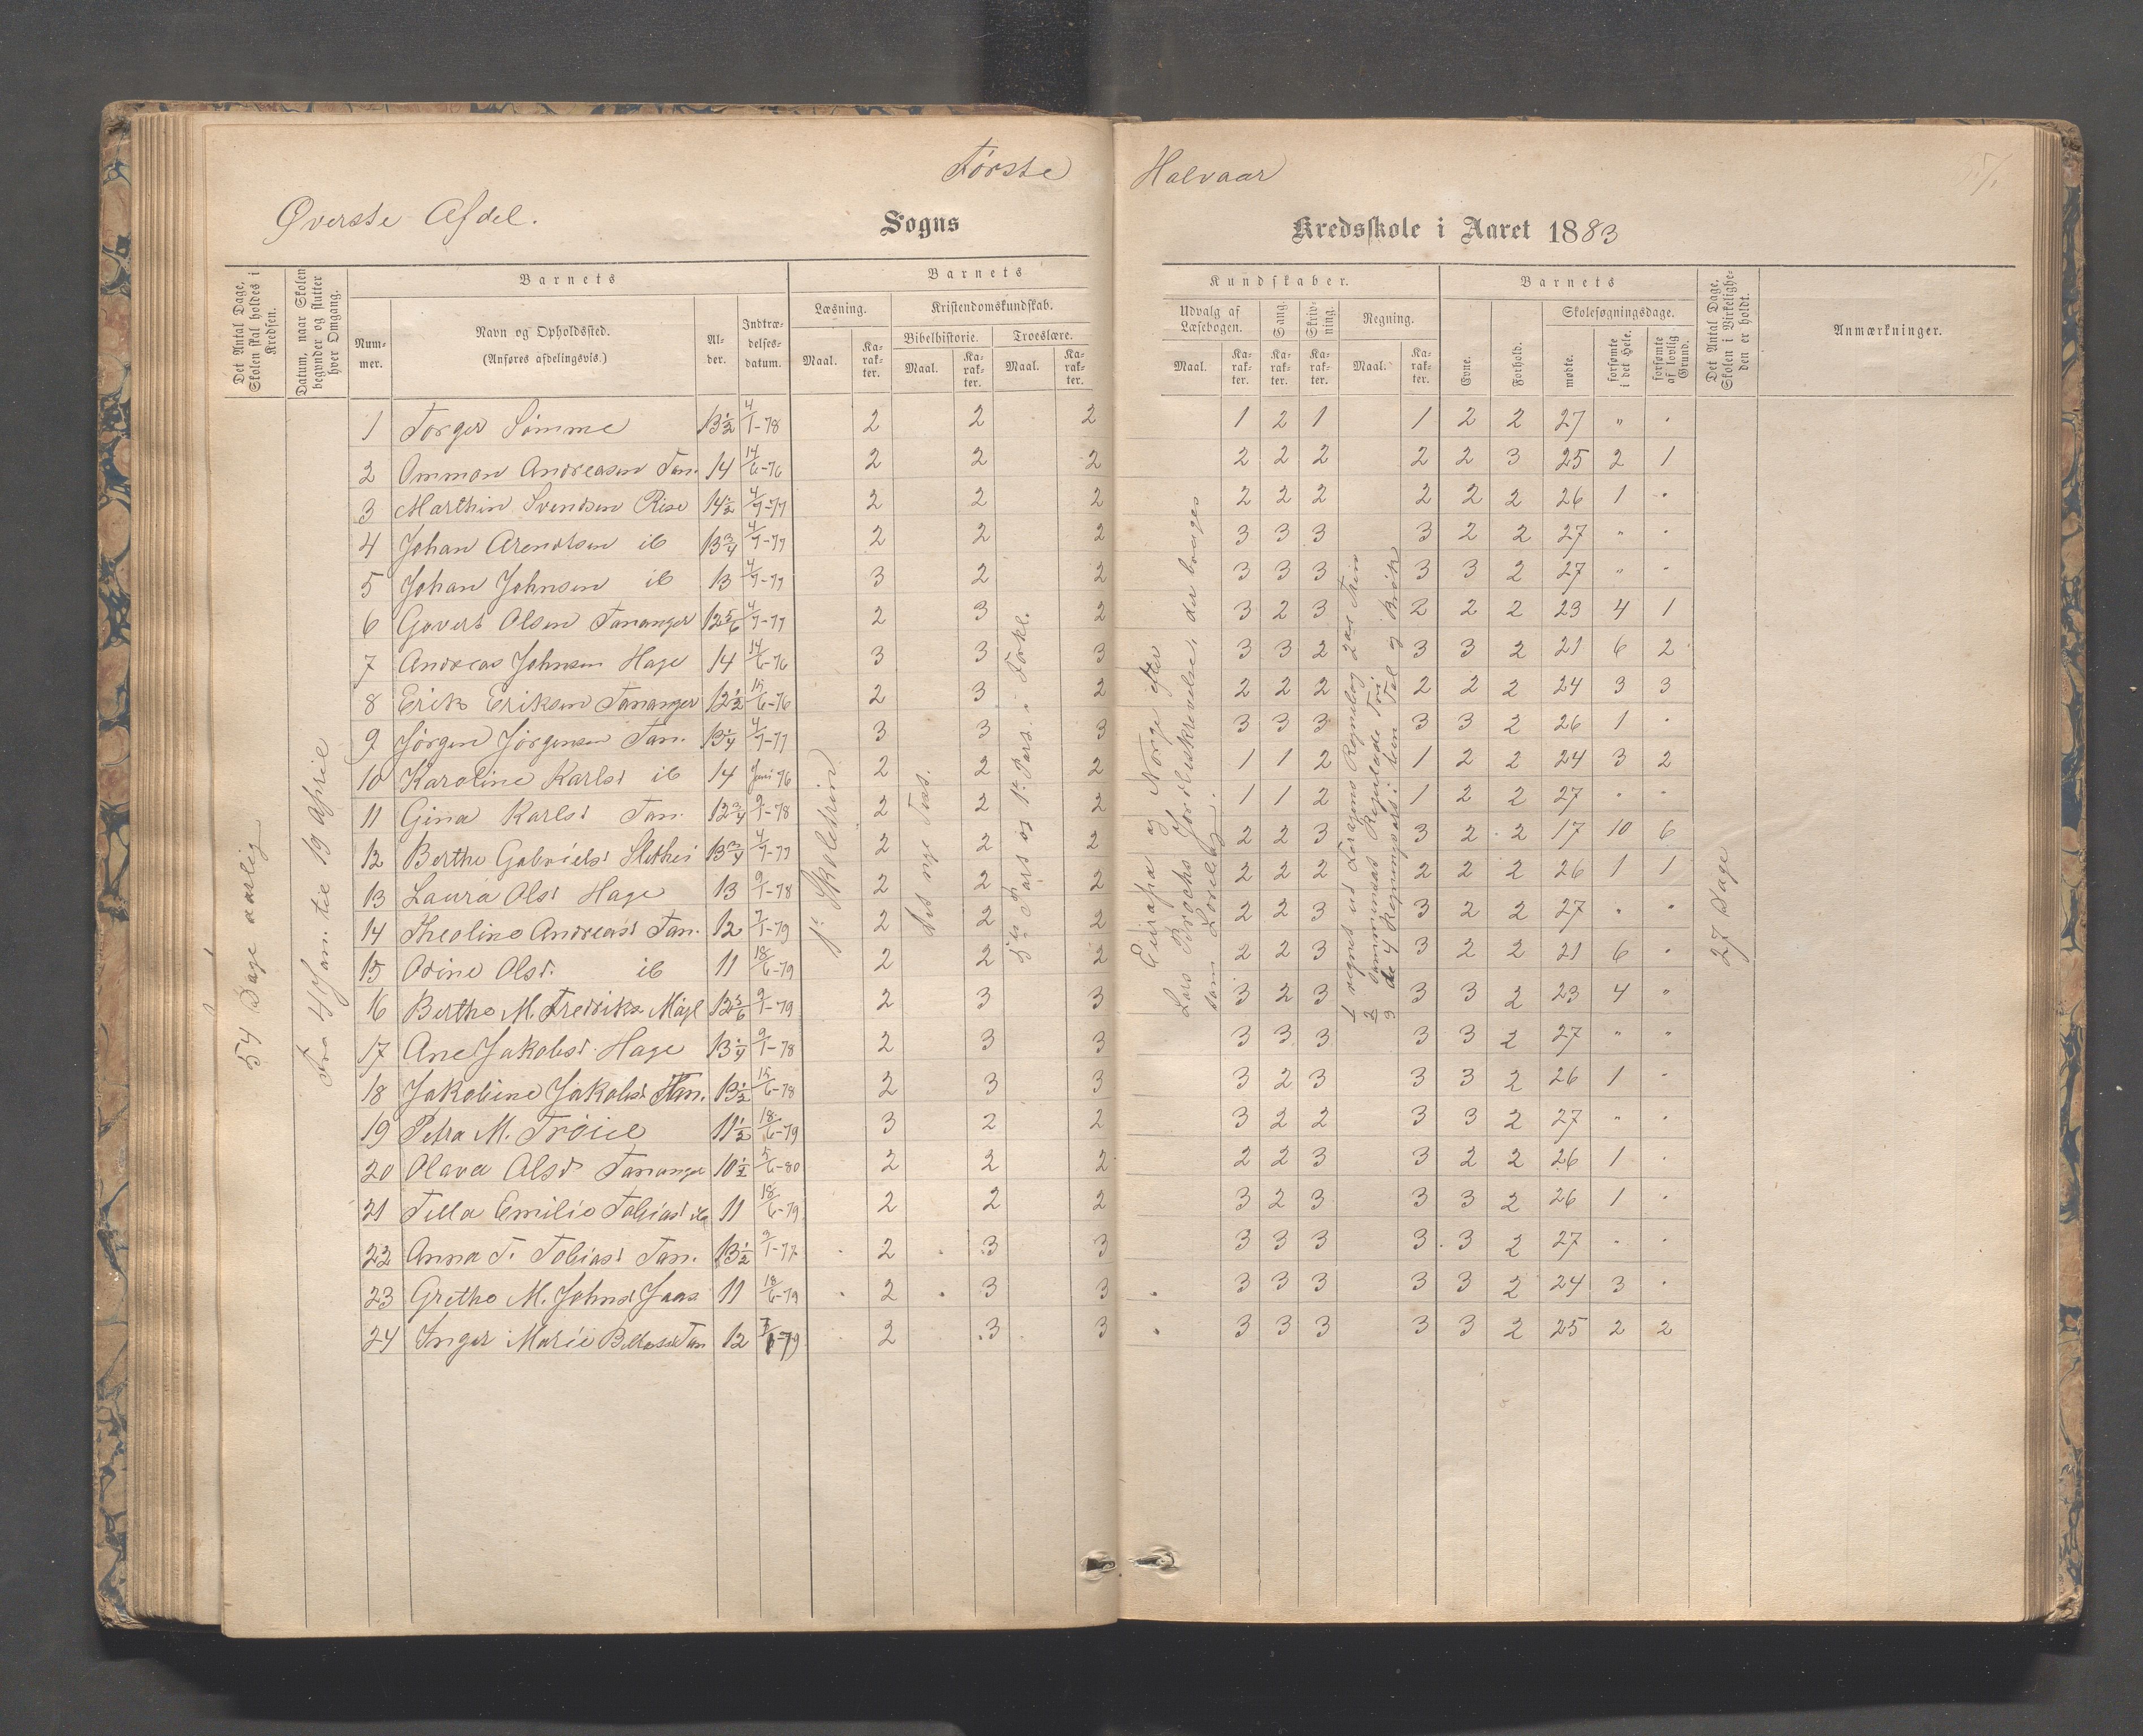 Første Halvaar
Øverste Afdel.
Sogns Kredsskole i Aaret 1883
Det Antal Dage, Skolen skal holdes i Kredsen.
Datum, naar Skolen begynder og slutter hver Omgang.
Barnets
Nummer.
Navn og Opholdssted.
(Anføres afdelingsvis.)
Alder.
Indtrædelsesdatum.
Barnets Kundskaber.
Læsning.
Kristendomskundskab.
Bibelhistorie.
Troeslære.
Maal. Karakter. Maal. Karakter. Maal. Karakter.
Udvalg af Læsebogen.
Sang.
Skrivning.
Regning.
Maal. Karakter. Karakter. Karakter. Maal. Karakter.
Barnets
Evne.
Forhold.
Skolesøgningsdage.
mødte.
forsømte i det Hele.
forsømte af lovlig Grund.
Det Antal Dage, Skolen i Virkeligheden er holdt.
Anmærkninger.
54 Dage aarlig
Fra 4 Jan. til 19 April
1ste Skoletrin
5te Part og 1ste Pars. i Forkl.
Europa og Norge efter
Lars Brochs Jordbeskrivelse, der bruges
som Lovellag.
27 Dage
1 Torger Sömme 13½ 4/1-78 2 2 2 1 2 1 1 2 2 27 " "
2 Ommon Andreasen Tan. 14 14/6-76 2 2 2 2 2 2 2 2 3 25 2 1
3 Marthin Svendsen Rise 14½ 4/7-77 2 2 2 2 2 2 2 2 2 26 1 "
4 Johan Arentsen ib 13¾ 4/7-77 2 2 2 3 3 3 3 2 2 27 " "
5 Johan Johnsen ib 13 4/7-77 3 2 2 3 3 3 3 3 2 27 " "
6 Govert Olsen Tananger 12 5/6 4/7-77 2 3 2 3 2 3 2 2 2 23 4 1
7 Andreas Johnsen Hage 14 14/6-76 3 3 3 3 3 2 3 3 2 21 6 2
8 Erik Eriksen Tananger 12½ 15/6-76 2 3 2 2 2 2 2 2 2 24 3 3
9 Jörgen Jörgensen Tan. 13¼ 4/7-77 3 3 3 3 3 3 3 3 2 26 1 "
10 Karoline Karlsd ib 14 Juni 76 2 2 2 1 1 2 1 2 2 24 3 2
11 Gina Karlsd Tan. 12¾ 9/1-78 2 2 2 1 1 2 1 2 2 27 " "
12 Berthe Gabrielsd 13¾ 4/7-77 2 2 2 2 2 3 3 2 2 17 10 6
13 Laura Olsd Hage 13 9/1-78 2 2 2 2 2 2 2 2 2 26 1 1
14 Theoline Andreasd Tan. 12 7/1-79 2 2 2 2 2 3 3 2 2 27 " "
15 Odine Olsd. ib 11 18/6-79 2 2 2 2 2 3 3 2 2 21 6 "
16 Berthe M. Fredriks. 9/1-79 2 3 3 3 2 3 3 3 2 23 4 "
17 Ane Jakobsd. Hage 13¼ 9/1-78 2 3 3 3 3 3 3 3 2 27 " "
18 Jakobine Jakobsd Tan. 13½ 15/6-78 2 3 3 3 2 3 3 3 2 26 1 "
19 Petra M. 11½ 18/6-79 3 2 2 3 2 2 3 3 2 27 " "
20 Olava Olsd Tananger 10½ 5/6-80 2 2 2 2 2 3 3 2 2 26 1 "
21 Tilla Emilie Tobiasd 11 18/6-79 2 2 2 3 2 3 3 3 2 26 1 "
22 Anna T. Tobiasd Tan. 13½ 9/1-77 2 3 3 3 3 3 3 3 2 27 " "
23 Grethe M. Johnsd 11 18/6-79 2 3 3 3 3 3 3 3 2 24 3 "
24 Inger Marie Tan 12 2 3 3 3 3 3 3 3 2 25 2 2